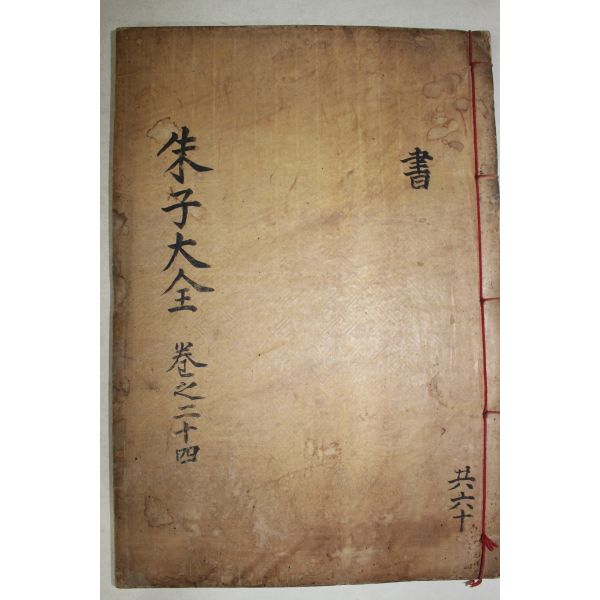 書
朱子大全 卷之二十四
共六十